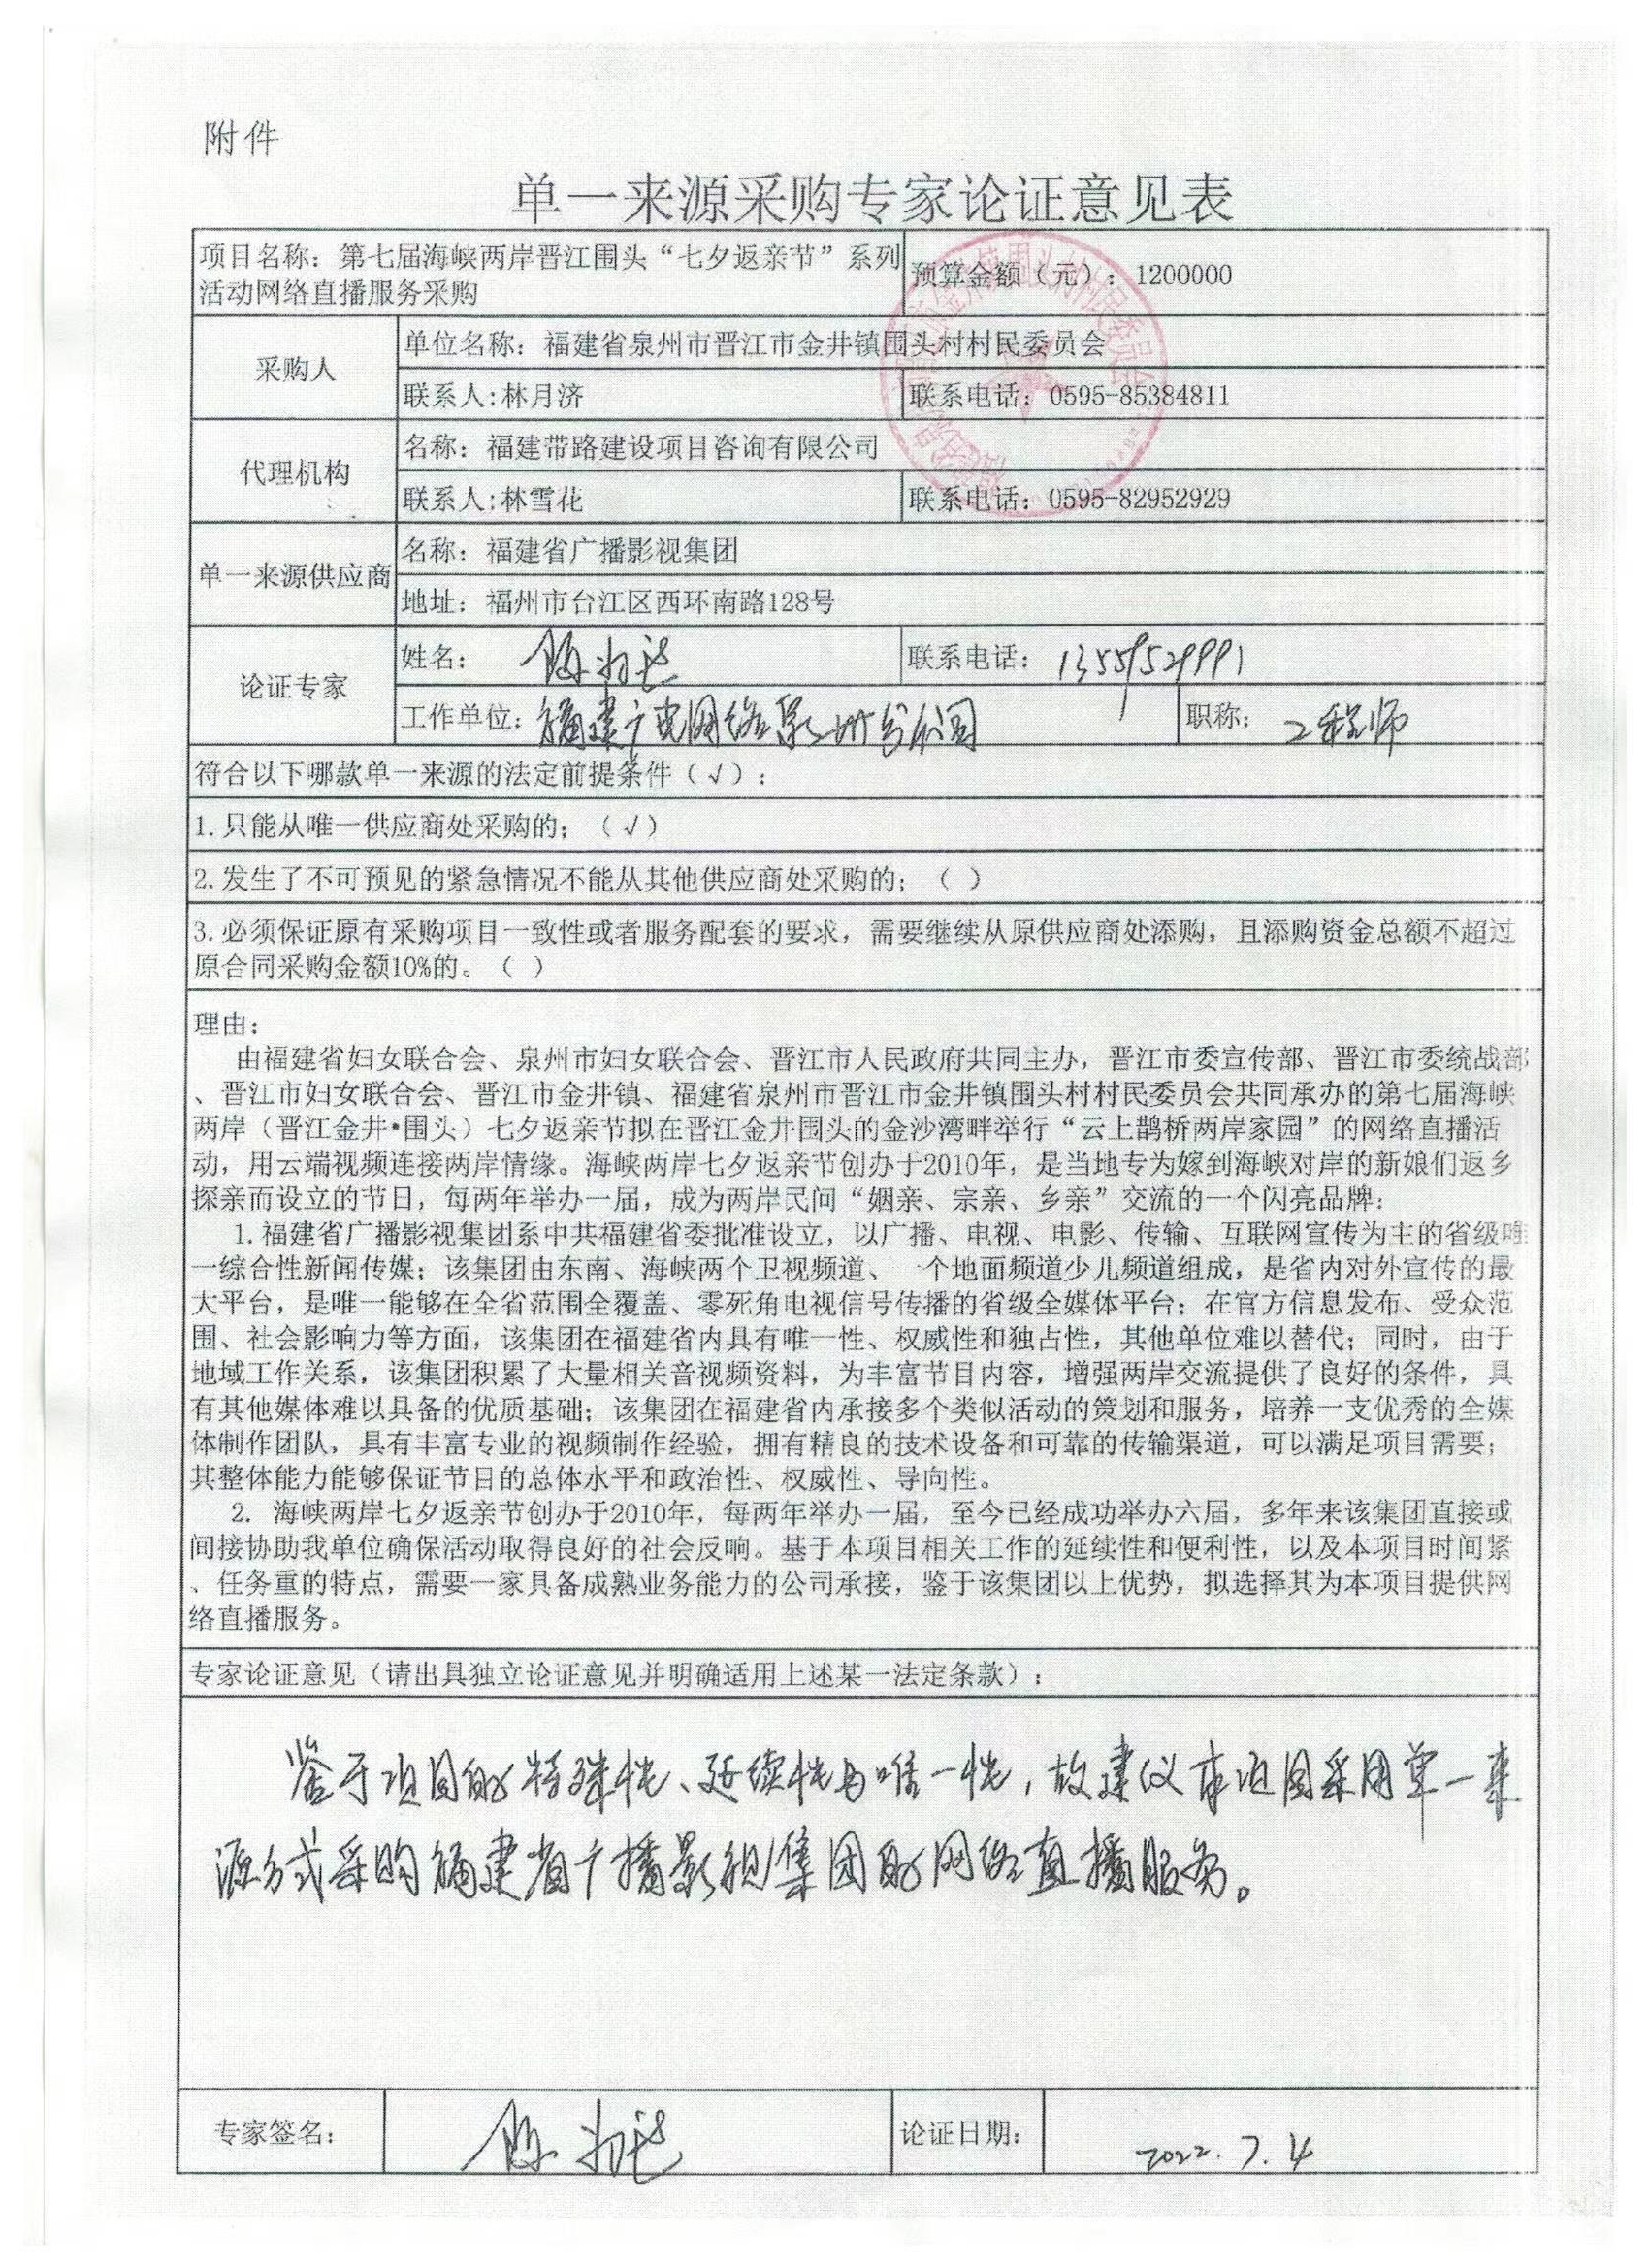 附件
单一来源采购专家论证意见表
项目名称：第七届海峡两岸晋江围头“七夕返亲节”系列
活动网络直播服务采购
预算金额（元）：1200000
采购人
单位名称：福建省泉州市晋江市金井镇围头村村民委员会
联系人:林月济
联系电话：0595-85384811
代理机构
名称：福建带路建设项目咨询有限公司
联系人:林雪花
联系电话：0595-82952929
单一来源供应商
名称：福建省广播影视集团
地址：福州市台江区西环南路128号
论证专家
姓名：
联系电话：13559529991
工作单位：福建广电网络泉州分公司
职称：工程师
符合以下哪款单一来源的法定前提条件（√）：
1.只能从唯一供应商处采购的；（√）
2.发生了不可预见的紧急情况不能从其他供应商处采购的；（ ）
3.必须保证原有采购项目一致性或者服务配套的要求，需要继续从原供应商处添购，且添购资金总额不超过
原合同采购金额10%的。（ ）
理由：
由福建省妇女联合会、泉州市妇女联合会、晋江市人民政府共同主办，晋江市委宣传部、晋江市委统战部
、晋江市妇女联合会、晋江市金井镇、福建省泉州市晋江市金井镇围头村村民委员会共同承办的第七届海峡
两岸（晋江金井•围头）七夕返亲节拟在晋江金井围头的金沙湾畔举行“云上鹊桥两岸家园”的网络直播活
动，用云端视频连接两岸情缘。海峡两岸七夕返亲节创办于2010年，是当地专为嫁到海峡对岸的新娘们返乡
探亲而设立的节日，每两年举办一届，成为两岸民间“姻亲、宗亲、乡亲”交流的一个闪亮品牌：
1.福建省广播影视集团系中共福建省委批准设立，以广播、电视、电影、传输、互联网宣传为主的省级唯
一综合性新闻传媒；该集团由东南、海峡两个卫视频道、一个地面频道少儿频道组成，是省内对外宣传的最
大平台，是唯一能够在全省范围全覆盖、零死角电视信号传播的省级全媒体平台；在官方信息发布、受众范
围、社会影响力等方面，该集团在福建省内具有唯一性、权威性和独占性，其他单位难以替代；同时，由于
地域工作关系，该集团积累了大量相关音视频资料，为丰富节目内容，增强两岸交流提供了良好的条件，具
有其他媒体难以具备的优质基础；该集团在福建省内承接多个类似活动的策划和服务，培养一支优秀的全媒
体制作团队，具有丰富专业的视频制作经验，拥有精良的技术设备和可靠的传输渠道，可以满足项目需要；
其整体能力能够保证节目的总体水平和政治性、权威性、导向性。
2. 海峡两岸七夕返亲节创办于2010年，每两年举办一届，至今已经成功举办六届，多年来该集团直接或
间接协助我单位确保活动取得良好的社会反响。基于本项目相关工作的延续性和便利性，以及本项目时间紧
、任务重的特点，需要一家具备成熟业务能力的公司承接，鉴于该集团以上优势，拟选择其为本项目提供网
络直播服务。
专家论证意见（请出具独立论证意见并明确适用上述某一法定条款）：
鉴于项目的特殊性、延续性与唯一性，故建议本项目采用单一来
源方式采购福建省广播影视集团的网络直播服务。
专家签名：
论证日期：
2022.7.4